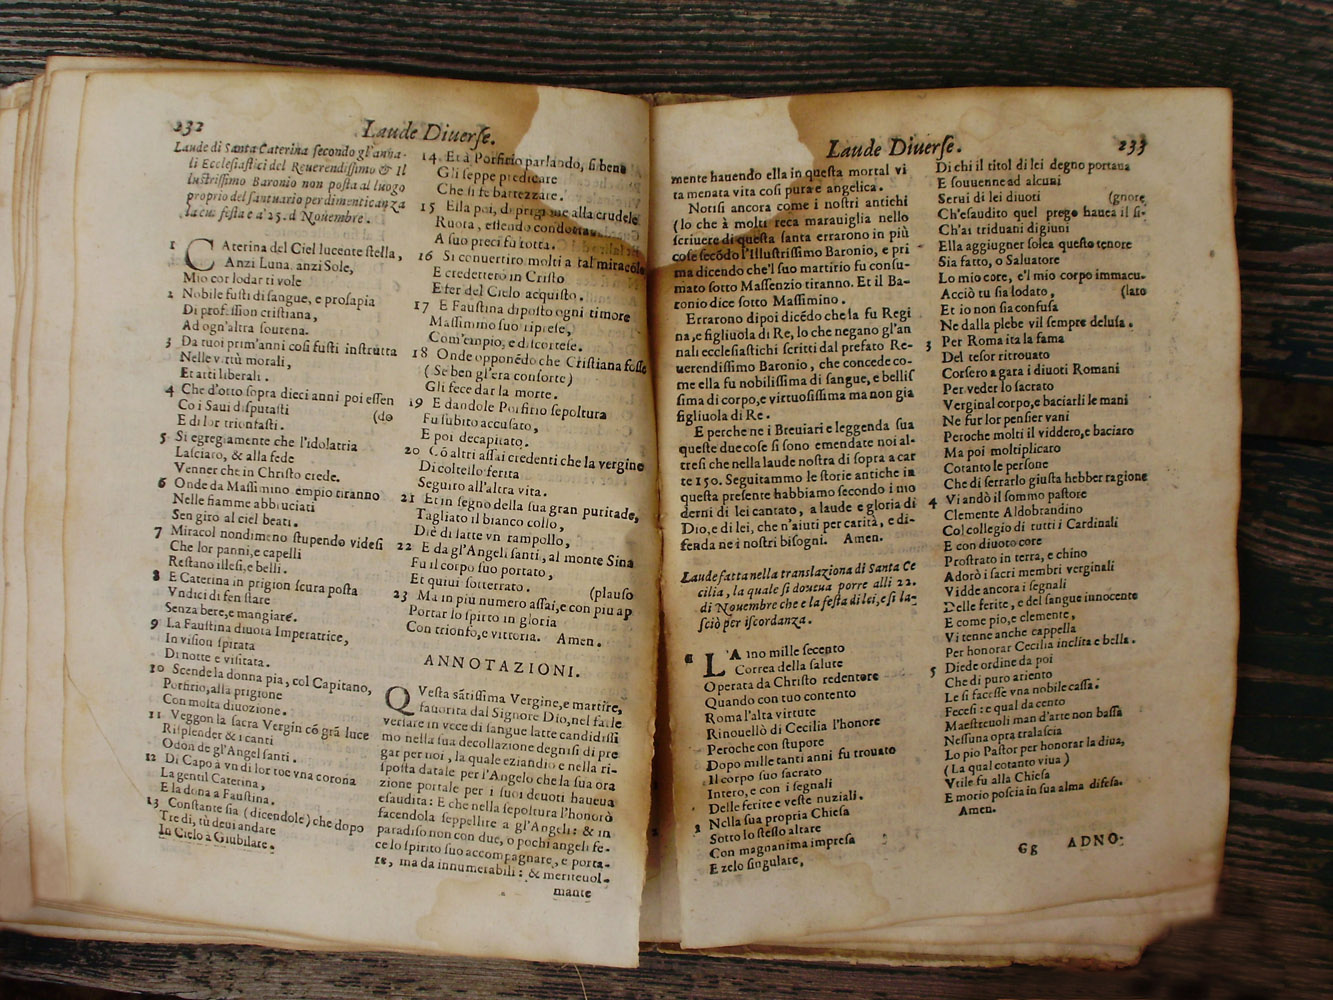 232
Laude Diuerse.
Laude di Santa Caterina secondo gl'anna-
li Ecclesiastici del Reuerendissimo & Il
lustrissimo Baronio non posta al luogo
proprio del santuario per dimenticanza
la cui festa e a' 25. d Nouembre.
1 CAterina del Ciel lucente stella,
Anzi Luna, anzi Sole,
Mio cor lodar ti vole
2 Nobile fusti di sangue, e prosapia
Di professìon cristiana,
Ad ogn'altra sourena.
3 Da tuoi prim'anni cosi fusti instrutta
Nelle virtù morali,
Et atti liberali.
4 Che d'otto sopra dieci anni poi essen
Co i Saui disputasti (do
E di lor trionfasti.
5 Si egregiamente che l'idolatria
Lasciaro, & alla fede
Venner che in Christo crede.
6 Onde da Massimino empio tiranno
Nelle fiamme abbruciati
Sen giro al ciel beati.
7 Miracol nondimeno stupendo videsi
Che lor panni, e capelli
Restano illesi, e belli.
8 E Caterina in prigion scura posta
Vndici di fen stare
Senza bere, e mangiare.
9 La Faustina diuota Imperatrice,
In vision spirata
Di notte e visitata.
10 Scende la donna pia, col Capitano,
Porfirio, alla prigione
Con molta diuozione.
11 Veggon la sacra Vergin cō grā luce
Risplender & i canti
Odon de gl'Angel santi.
12 Di Capo à vn di lor toe vna corona
La gentil Caterina,
E la dona a Faustina.
13 Constante sia (dicendole) che dopo
Tre di, tù deui andare
In Cielo à Giubilare.
14 Et à Porfirio parlando, sì bene
Gli seppe predicare
Che si fe battezzare.
15 Ella poi, di prigione alla crudele
Ruota, essendo condotta
A suo preci fu rotta.
16 Si conuertiro molti a tal miracolo
E credettero in Cristo
E fer del Cielo acquisto.
17 E Faustina diposto ogni timore
Massimino suo riprese,
Com'empio, e discortese.
18 Onde opponēdo che Cristiana fosse
(Se ben gl'era consorte)
Gli fece dar la morte.
19 E dandole Porfirio sepoltura
Fu subito accusato,
E poi decapitato.
20 Cō altri assai credenti che la vergine
Di coltello ferita
Seguiro all'altra vita.
21 Et in segno della sua gran puritade,
Tagliato il bianco collo,
Diè di latte vn rampollo,
22 E da gl'Angeli santi, al monte Sina
Fu il corpo suo portato,
Et quiui sotterrato. (plauso
23 Ma in più numero assai, e con piu ap
Portar lo spirto in gloria
Con trionfo, e vittoria. Amen.
ANNOTAZIONI.
QVesta sātissima Vergine, e martire,
fauorita dal Signore Dio, nel farle
versare in vece di sangue latte candidissi
mo nella sua decollazione degnisi di pre
gar per noi, la quale eziandio e nella ri-
sposta datale per l'Angelo che la sua ora
zione portale per i suoi deuoti haueua
esaudita: E che nella sepoltura l'honorò
facendola seppellire a gl'Angeli: & in
paradiso non con due, o pochi angeli fe-
ce lo spirito suo accompagnare, e porta-
re, ma da innumerabili: & meriteuol-
mante
Laude Diuerse.
233
mente hauendo ella in questa mortal vi
ta menata vita cosi pura e angelica.
Notisi ancora come i nostri antichi
(lo che à molti reca marauiglia nello
scriuere di questa santa errarono in più
cose secōdo l'Illustrissimo Baronio, e pri
ma dicendo che'l suo martirio fu consu-
mato sotto Massenzio tiranno. Et il Ba-
ronio dice sotto Massimino.
Errarono di poi dicēdo che la fu Regi
na, e figliuola di Re, lo che negano gl'an
nali ecclesiastichi scritti dal prefato Re-
uerendissimo Baronio, che concede co-
me ella fu nobilissima di sangue, e bellis
sima di corpo, e virtuosissima ma non gia
figliuola di Re.
E perche ne i Breuiari e leggenda sua
queste due cose si sono emendate noi al-
tresi che nella laude nostra di sopra a car
te 150. Seguitammo le storie antiche in
questa presente habbiamo secondo i mo
derni di lei cantato, a laude e gloria di
Dio, e di lei, che n'aiuti per carità, e di-
fenda ne i nostri bisogni. Amen.
Laude fatta nella translaziona di Santa Ce
cilia, la quale si doueua porre alli 22.
di Nouembre che e la festa di lei, e si la-
sciò per iscordanza.
1 L'Anno mille secento
Correa della salute
Operata da Christo redentore
Quando con tuo contento
Roma l'alta virtute
Rinouellò di Cecilia l'honore
Peroche con stupore
Dopo mille tanti anni fu trouato
Il corpo suo sacrato
Intero, e con i segnali
Delle ferite e veste nuziali.
2 Nella sua propria Chiesa
Sotto lo stesso altare
Con magnanima impresa
E zelo singulare,
Di chi il titol di lei degno portaua
E souuenne ad alcuni
Serui di lei diuoti (gnore
Ch'esaudito quel prego hauea il si-
Ch'ai triduani digiuni
Ella aggiugner solea questo tenore
Sia fatto, o Saluatore
Lo mio core, e'l mio corpo immacu-
Acciò tu sia lodato, (lato
Et io non sia confusa
Ne dalla plebe vil sempre delusa.
3 Per Roma ita la fama
Del tesor ritrouato
Corsero a gara i diuoti Romani
Per veder lo sacrato
Verginal corpo, e baciarli le mani
Ne fur lor pensier vani
Peroche molti il viddero, e baciaro
Ma poi moltiplicaro
Cotanto le persone
Che di serrarlo giusta hebber ragione
4 Vi andò il sommo pastore
Clemente Aldobrandino
Col collegio di tutti i Cardinali
E con diuoto core
Prostrato in terra, e chino
Adorò i sacri membri verginali
Vidde ancora i segnali
Delle ferite, e del sangue innocente
E come pio, e clemente,
Vi tenne anche cappella
Per honorar Cecilia inclita e bella.
5 Diede ordine da poi
Che di puro ariento
Le si facesse vna nobile cassa.
Fecesi: e qual da cento
Maestreuoli man d'arte non bassa
Nessuna opra tralascia
Lo pio Pastor per honorar la diua,
(La qual cotanto viua)
Vtile fu alla Chiesa
E morio poscia in sua alma difesa.
Amen.
Gg ADNO: